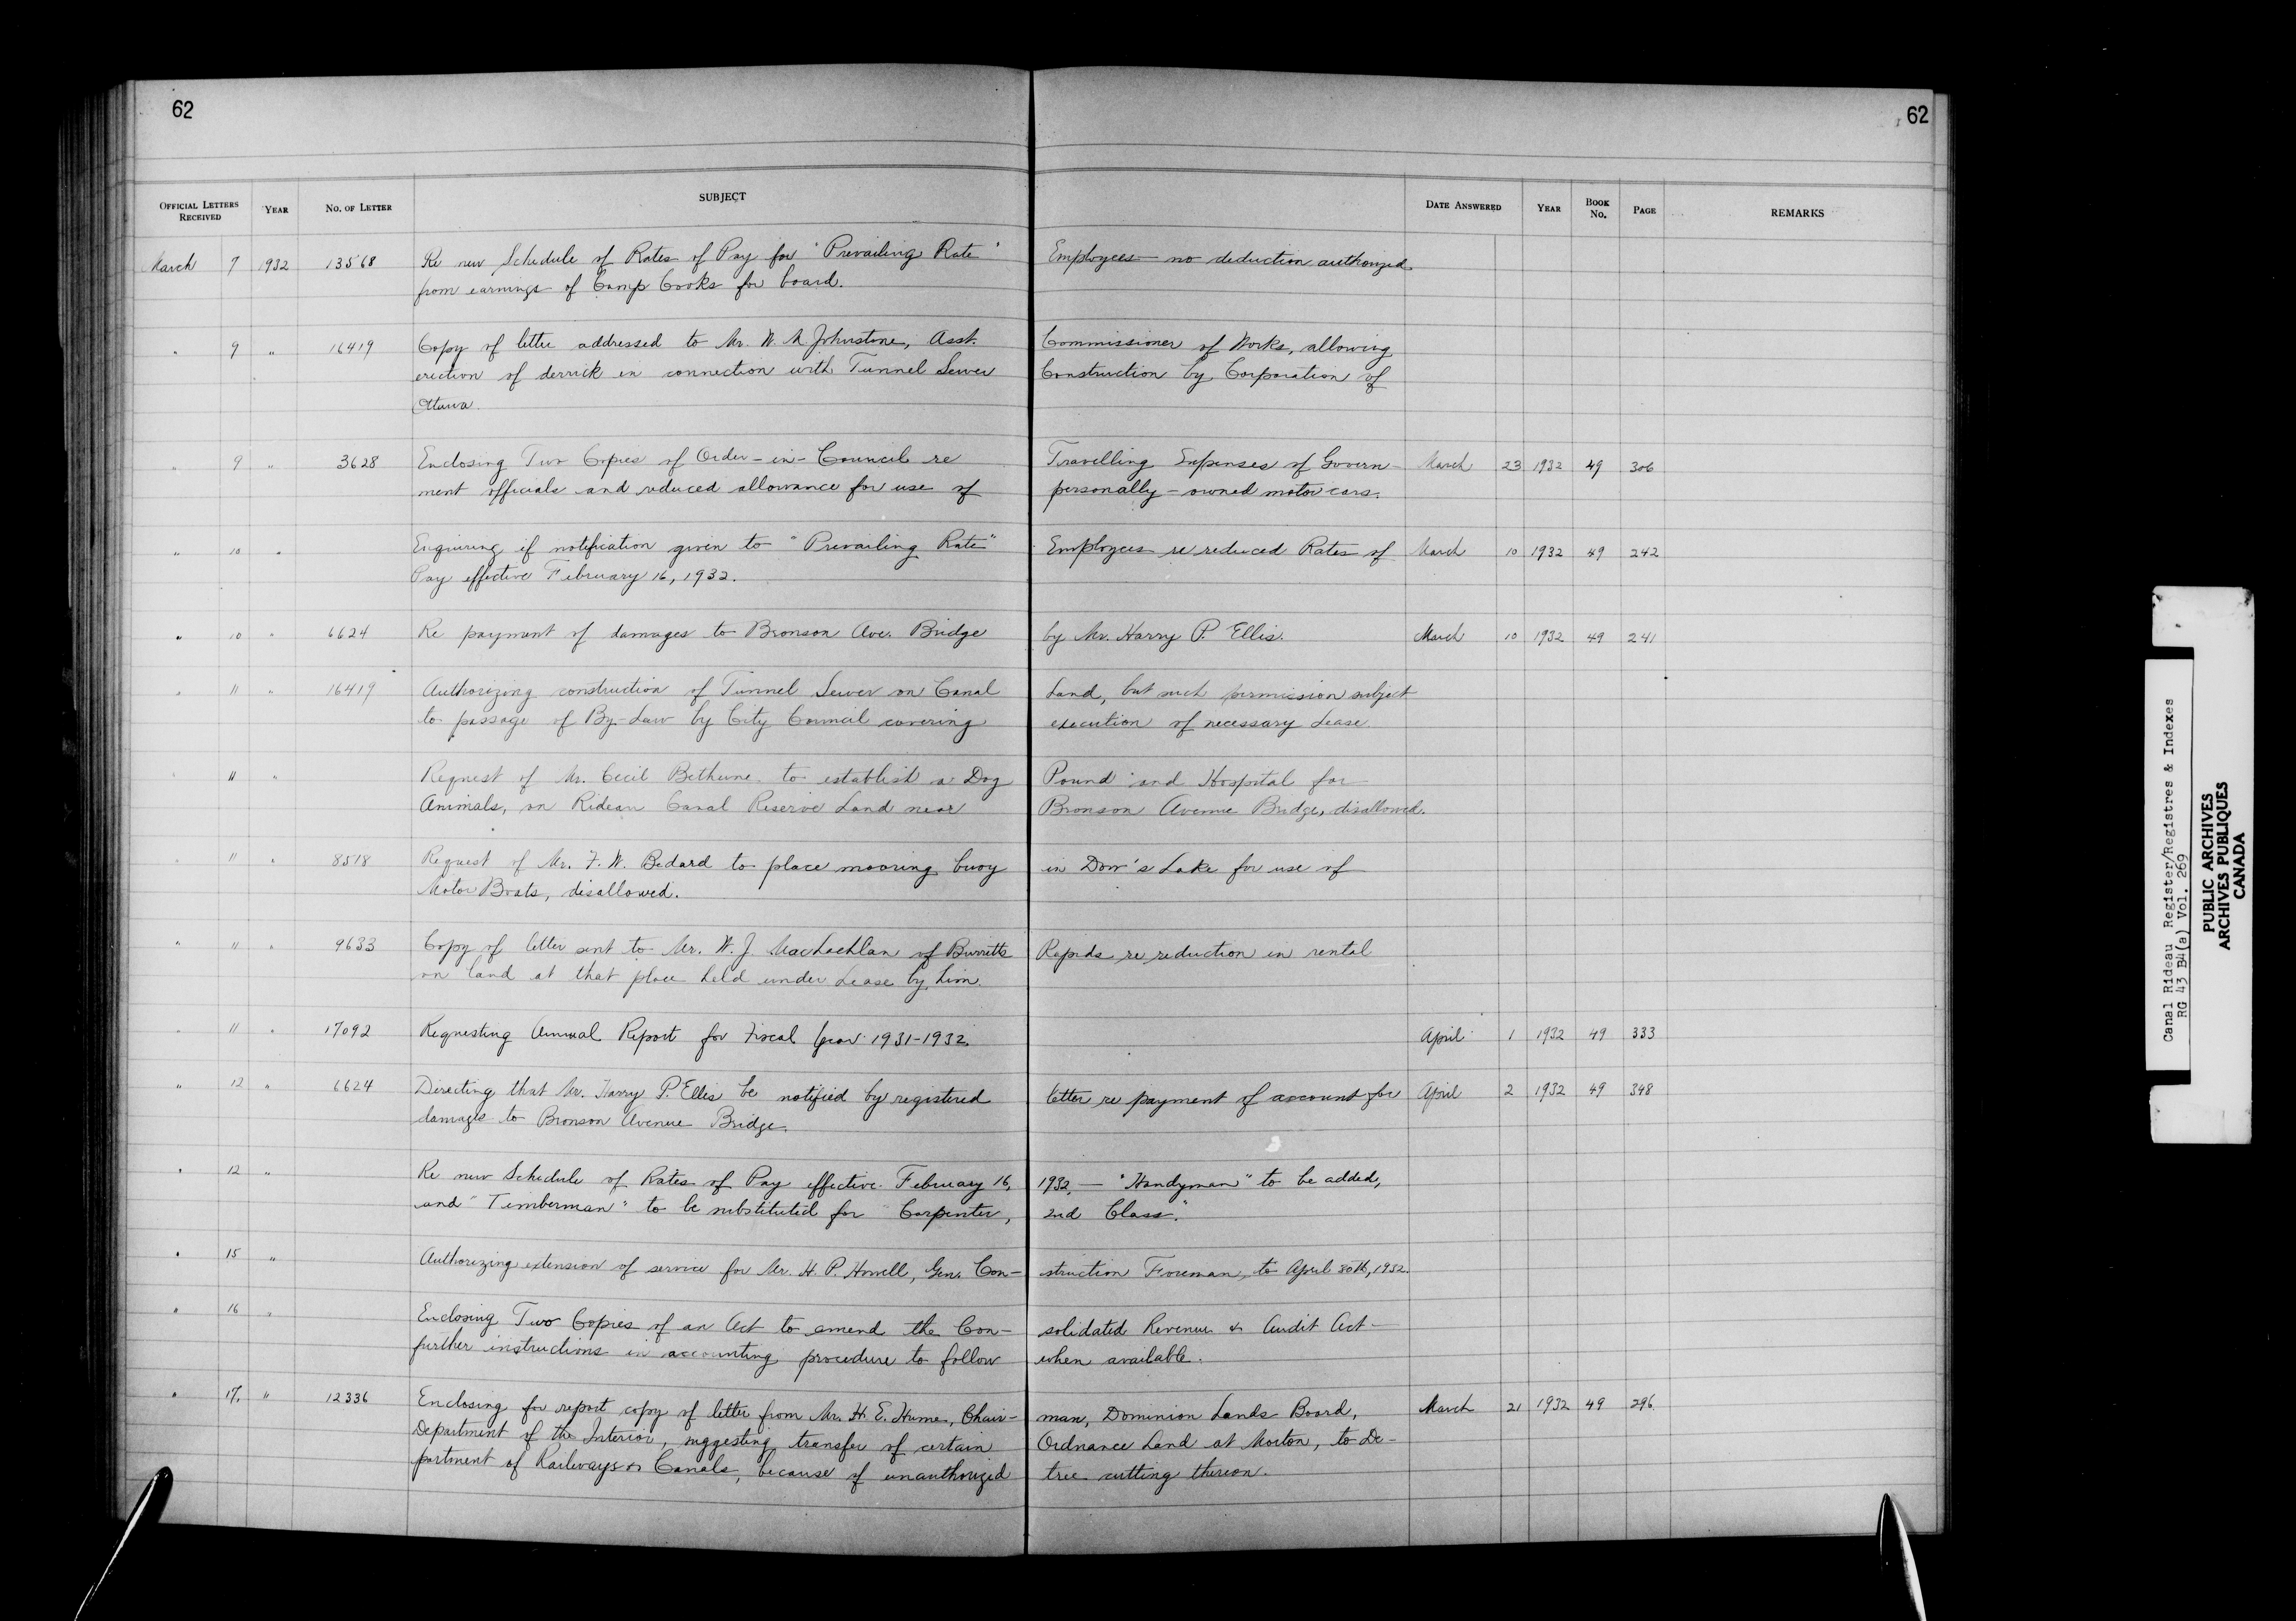 62
62
OFFICIAL LETTERS RECEIVED YEAR NO. OF LETTER SUBJECT DATE ANSWERED YEAR BOOK No. PAGE REMARKS
March 7 1932 13568 Re new Schedule of Rates of Pay for "Prevailing Rate" Employees — no deduction authorized
from earnings of Camp Cooks for board.
" 9 " 16419 Copy of letter addressed to Mr. W. A. Johnstone, Asst. Commissioner of Works, allowing
erection of derrick in connection with Tunnel Sewer Construction by Corporation of
Ottawa.
" 9 " 3628 Enclosing Two Copies of Order-in-Council re Travelling Expenses of Govern- March 23 1932 49 306
ment officials and reduced allowance for use of personally-owned motor cars.
" 10 " Enquiring if notification given to "Prevailing Rate" Employees re reduced Rates of March 10 1932 49 242
Pay effective February 16, 1932.
" 10 " 6624 Re payment of damages to Bronson Ave. Bridge by Mr. Harry P. Ellis. March 10 1932 49 241
" 11 " 16419 Authorizing construction of Tunnel Sewer on Canal Land, but such permission subject
to passage of By-Law by City Council covering execution of necessary Lease.
" 11 " Request of Mr. Cecil Bethune to establish a Dog Pound and Hospital for
Animals, on Rideau Canal Reserve Land near Bronson Avenue Bridge, disallowed.
" 11 " 8518 Request of Mr. F. W. Bedard to place mooring buoy in Dow's Lake for use of
Motor Boats, disallowed.
" 11 " 9633 Copy of letter sent to Mr. W. J. MacLachlan of Burritts Rapids re reduction in rental
on land at that place held under Lease by him.
" 11 " 17092 Requesting Annual Report for Fiscal Year 1931-1932. April 1 1932 49 333
" 12 " 6624 Directing that Mr. Harry P. Ellis be notified by registered letter re payment of account for April 2 1932 49 348
damages to Bronson Avenue Bridge.
" 12 " Re new Schedule of Rates of Pay effective February 16, 1932, — "Handyman" to be added,
and "Timberman" to be substituted for "Carpenter, 2nd Class."
" 15 " Authorizing extension of service for Mr. H. P. Howell, Gen. Con- struction Foreman, to April 30th, 1932.
" 16 " Enclosing Two Copies of an Act to amend the Con- solidated Revenue & Audit Act —
further instructions in accounting procedure to follow when available.
" 17. " 12336 Enclosing for report copy of letter from Mr. H. E. Hume, Chair- man, Dominion Lands Board, March 21 1932 49 296.
Department of the Interior, suggesting transfer of certain Ordnance Land at Morton, to De-
partment of Railways & Canals, because of unauthorized tree cutting thereon.
Canal Rideau Register/Registres & Indexes
RG 43 B4(a) Vol. 269
PUBLIC ARCHIVES
ARCHIVES PUBLIQUES
CANADA